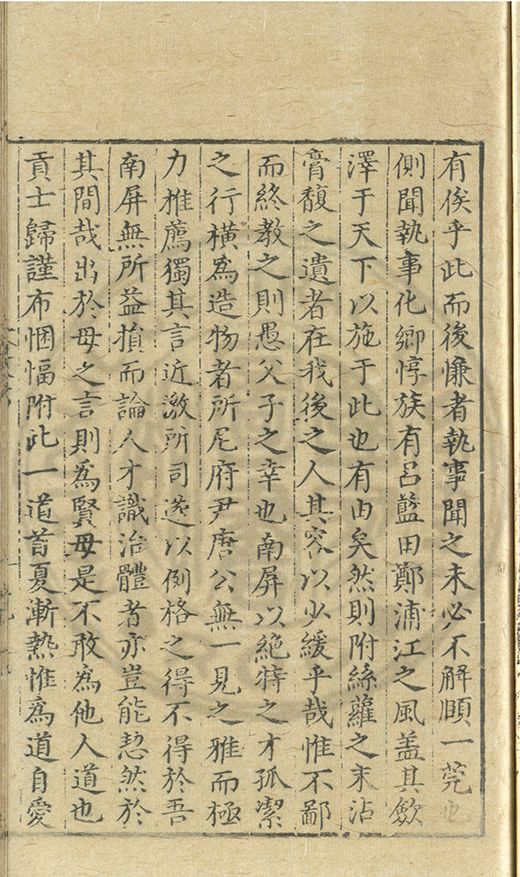 有俟乎此而後慊者執事聞之未必不解頤一莞也
側聞執事化鄉惇族有呂藍田鄭浦江之風盖其斂
澤于天下以施于此也有由矣然則附絲蘿之末沾
膏馥之遺者在我後之人其容以少緩乎哉惟不鄙
而終教之則愚父子之幸也南屏以絶特之才孤潔
之行橫為造物者所尼府尹唐公無一見之雅而極
力推薦獨其言近激所司遂以例格之得不得於吾
南屏無所益損而論人才識治體者亦豈能恝然於
其間哉出於母之言則為賢母是不敢為他人道也
貢士歸謹布悃愊附此一道首夏漸熱惟為道自愛